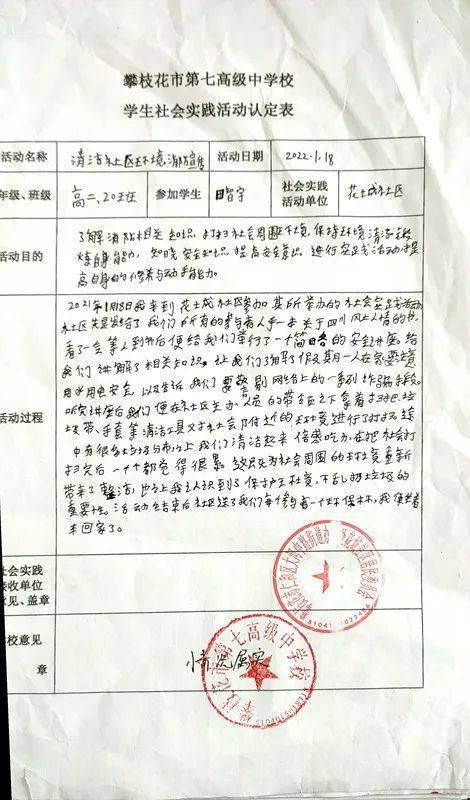 攀枝花市第七高级中学校
学生社会实践活动认定表
活动名称 清洁社区环境、消防宣传 活动日期 2022.1.18
年级、班级 高二、20班 参加学生 社会实践活动单位 花城社区
活动目的 了解消防相关知识,打扫社会周围环境,保持环境清洁
自身能力,知晓安全知识,提高安全意识,进行实践活动提
高自身的修养与动手能力。
活动过程 2021年1月18日我来到花城社区参加其所举办的社会实践活动
社区先是给了我们所有的参与者人手一本关于四川风土人情的书,
看了一会等人到齐后便给我们举行了一个简略的安全讲座,给
我们讲解了相关知识。让我们了解了假期一人在家要注意
用水用电安全,以及告诉我们要警惕网络上的一系列诈骗手段。
听完讲座后我们便在社区主办人员的带领之下拿着扫把垃
圾袋、手套等清洁工具对社会附近的环境进行了打扫,途
中有很多垃圾分布,我们清洁起来倍感吃力,在把社会打
扫完后一个个都觉得很累,这只因为社会周围的环境重新
带来了整洁,也让我认识到了保护环境,不乱扔垃圾的
重要性。活动结束后社区送了我们每个参与者一个环保杯,我便拿着
来回家了。
社会实践
接收单位
意见、盖章
学校意见 情况属实
章
攀枝花市第七高级中学校